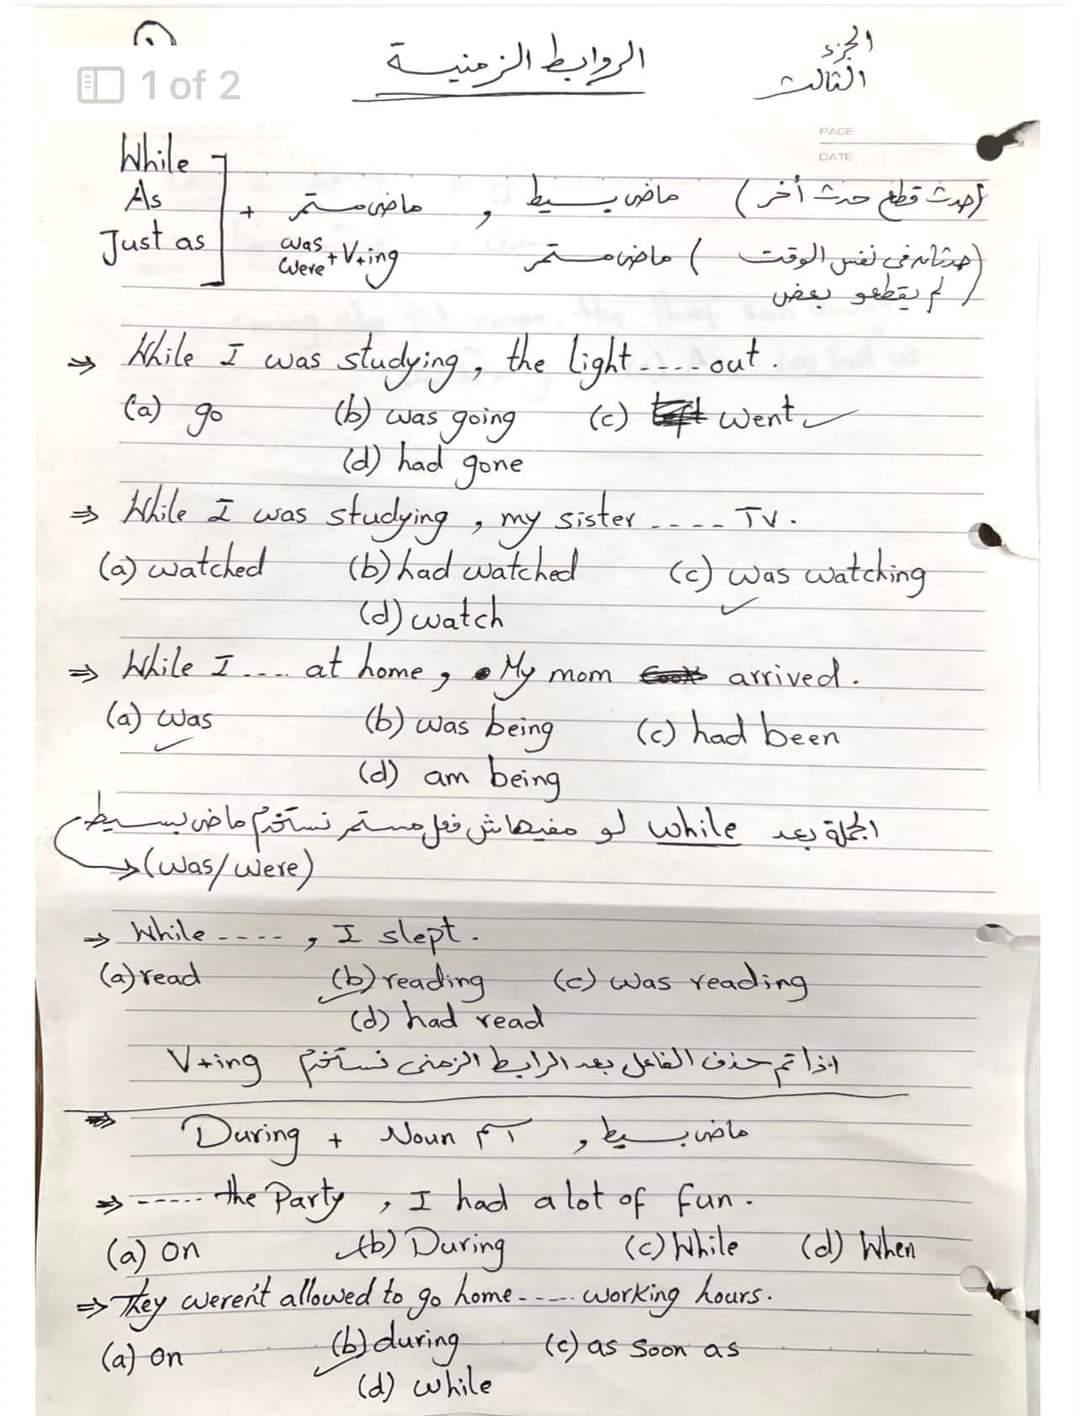 الجزء
الثالث
الروابط الزمنية
1 of 2
PAGE
DATE
While
As
Just as
+ ماضى مستمر , ماضى بسيط (حدث قطع حدث أخر)
was
were + V+ing ماضى مستمر (حدثان فى نفس الوقت
لم يقطعو بعض)
⇒ While I was studying, the light ---- out.
(a) go (b) was going (c) went ✓
(d) had gone
⇒ While I was studying, my sister ---- TV.
(a) watched (b) had watched (c) was watching ✓
(d) watch
⇒ While I ---- at home, My mom arrived.
(a) was ✓ (b) was being (c) had been
(d) am being
الجملة بعد while لو مفيهاش فعل مستمر نستخدم ماضى بسيط
→ (was/were)
⇒ While ----, I slept.
(a) read (b) reading ✓ (c) was reading
(d) had read
اذا تم حذف الفاعل بعد الرابط الزمنى نستخدم V+ing
⇒ During + Noun اسم , ماضى بسيط
⇒ ----- the Party, I had a lot of fun.
(a) on (b) During ✓ (c) While (d) When
⇒ They weren't allowed to go home ---- working hours.
(a) on (b) during ✓ (c) as soon as
(d) while